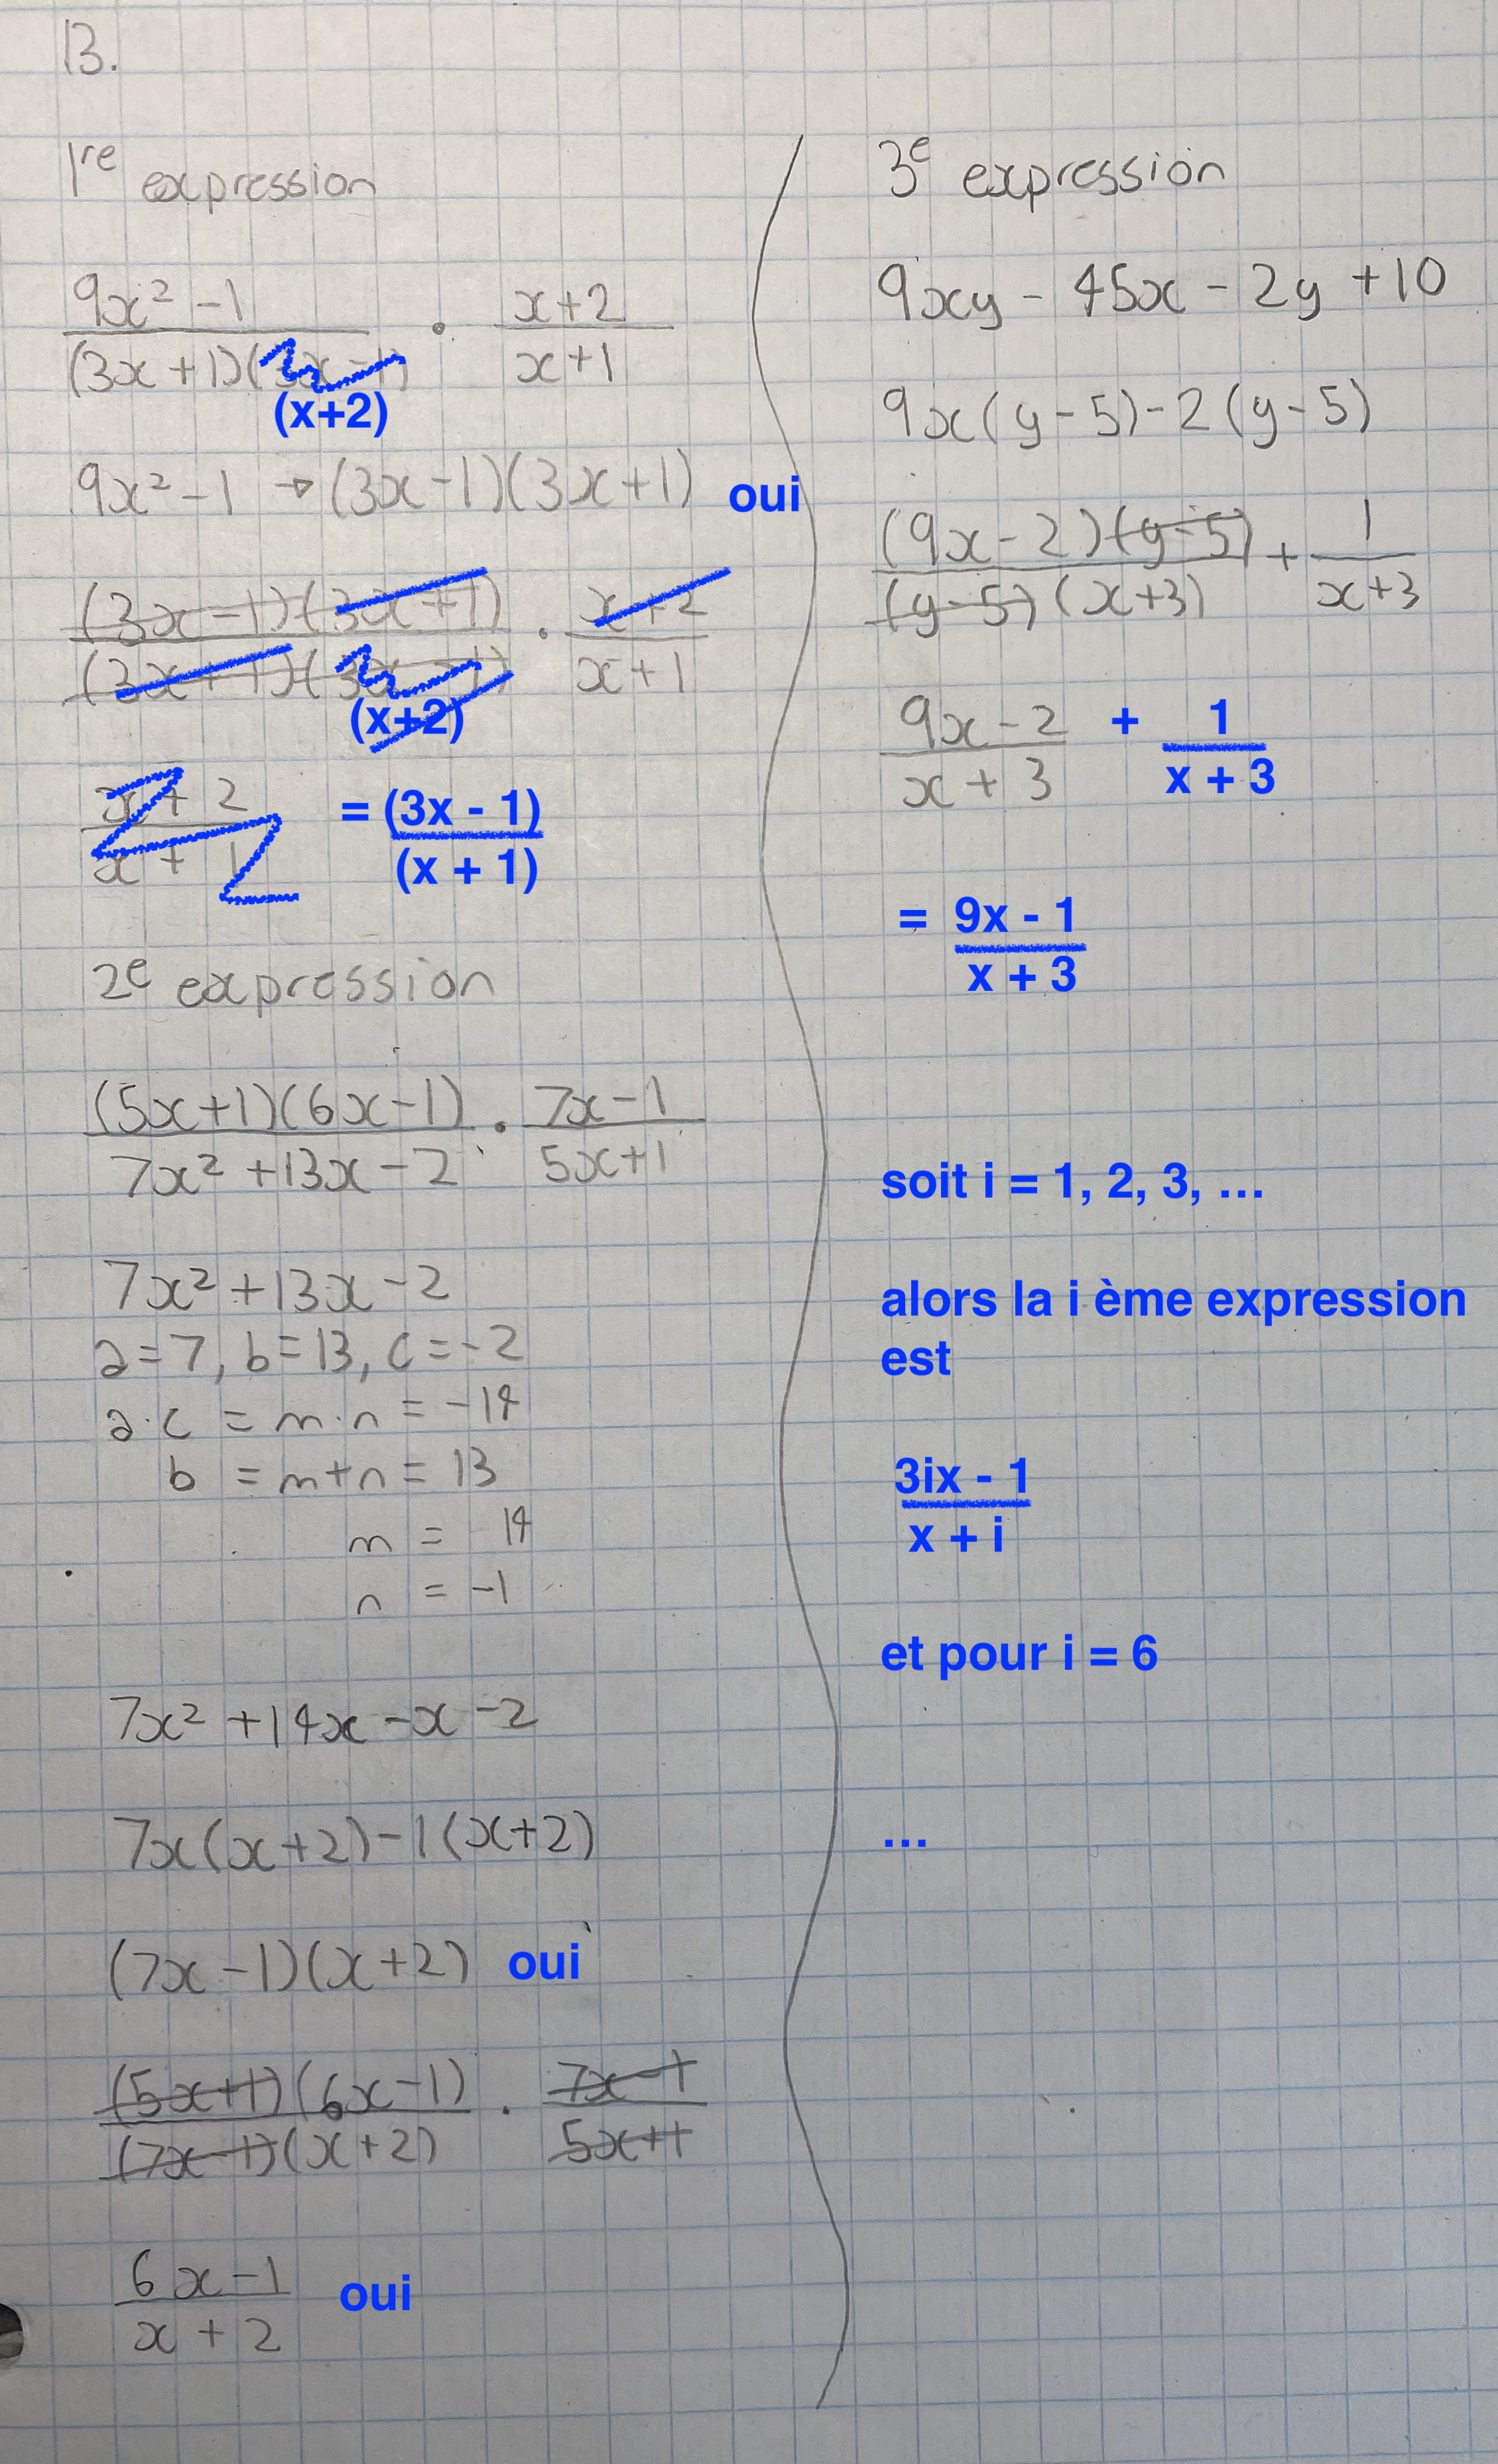 13.
1re expression
9x² - 1 / (3x + 1)(3x - 1) · x+2 / x+1
(x+2)
9x² - 1 → (3x - 1)(3x + 1) oui
(3x - 1)(3x + 1) / (3x + 1)(3x - 1) · x+2 / x+1
(x+2)
x + 2 / x + 1 = (3x - 1) / (x + 1)
2e expression
(5x+1)(6x-1) / 7x² + 13x - 2 · 7x-1 / 5x+1
7x² + 13x - 2
a = 7, b = 13, c = -2
a·c = m·n = -14
b = m+n = 13
m = 14
n = -1
7x² + 14x - x - 2
7x(x+2) - 1(x+2)
(7x - 1)(x+2) oui
(5x+1)(6x-1) / (7x-1)(x+2) · 7x-1 / 5x+1
6x-1 / x + 2 oui
3e expression
9xy - 45x - 2y + 10
9x(y-5) - 2(y-5)
(9x-2)(y-5) / (y-5)(x+3) + 1 / x+3
9x-2 / x + 3 + 1 / x + 3
= 9x - 1 / x + 3
soit i = 1, 2, 3, ...
alors la i ème expression
est
3ix - 1 / x + i
et pour i = 6
...